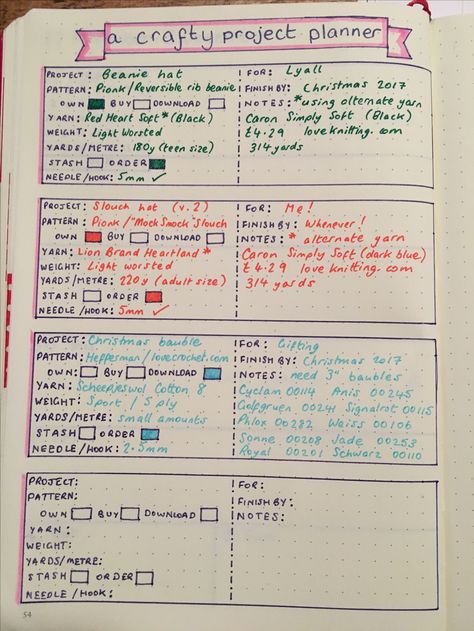 a crafty project planner
PROJECT: Beanie hat
PATTERN: Pionk/Reversible rib beanie
OWN BUY DOWNLOAD
YARN: Red Heart Soft* (Black)
WEIGHT: Light Worsted
YARDS/METRE: 180y (teen size)
STASH ORDER
NEEDLE/HOOK: 5mm ✓
FOR: Lyall
FINISH BY: Christmas 2017
NOTES: *using alternate yarn
Caron Simply Soft (Black)
£4.29 loveknitting.com
314 yards
PROJECT: Slouch hat (v.2)
PATTERN: Pionk/"Mock Smock" Slouch
OWN BUY DOWNLOAD
YARN: Lion Brand Heartland *
WEIGHT: Light worsted
YARDS/METRE: 220y (adult size)
STASH ORDER
NEEDLE/HOOK: 5mm ✓
FOR: Me!
FINISH BY: Whenever!
NOTES: * alternate yarn
Caron Simply Soft (dark blue)
£4.29 love knitting.com
314 yards
PROJECT: Christmas bauble
PATTERN: Heffernan/lovecrochet.com
OWN: BUY DOWNLOAD
YARN: Scheepjeswol Cotton 8
WEIGHT: Sport / 5 ply
YARDS/METRE: small amounts
STASH ORDER
NEEDLE/HOOK: 2.5mm
FOR: Gifting
FINISH BY: Christmas 2017
NOTES: need 3" baubles
Cyclam 00114 Anis 00245
Golfgruen 00241 Signalrot 00115
Phlox 00282 Weiss 00106
Sonne 00208 Jade 00253
Royal 00201 Schwarz 00110
PROJECT:
PATTERN:
OWN BUY DOWNLOAD
YARN:
WEIGHT:
YARDS/METRE:
STASH ORDER
NEEDLE/HOOK:
FOR:
FINISH BY:
NOTES:
54